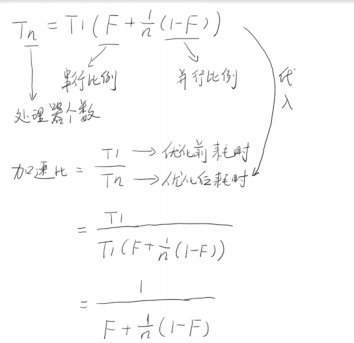 Tn = T1(F + 1/n(1-F))
串行比例 并行比例
处理器个数
代入
加速比 = T1/Tn → 优化前耗时 → 优化后耗时
= T1 / T1(F + 1/n(1-F))
= 1 / F + 1/n(1-F)